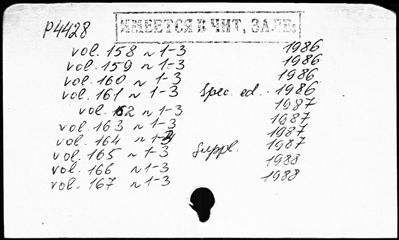 P4428
ИМЕЕТСЯ В ЧИТ. ЗАЛЕ.
vol. 158 N 1-3 1986
vol. 159 N 1-3 1986
vol. 160 N 1-3 1986
vol. 161 N 1-3 spec. ed. 1986
vol. 162 N 1-3 1987
vol. 163 N 1-3 1987
vol. 164 N 1-3 1987
vol. 165 N 1-3 Suppl. 1987
vol. 166 N 1-3 1988
vol. 167 N 1-3 1988